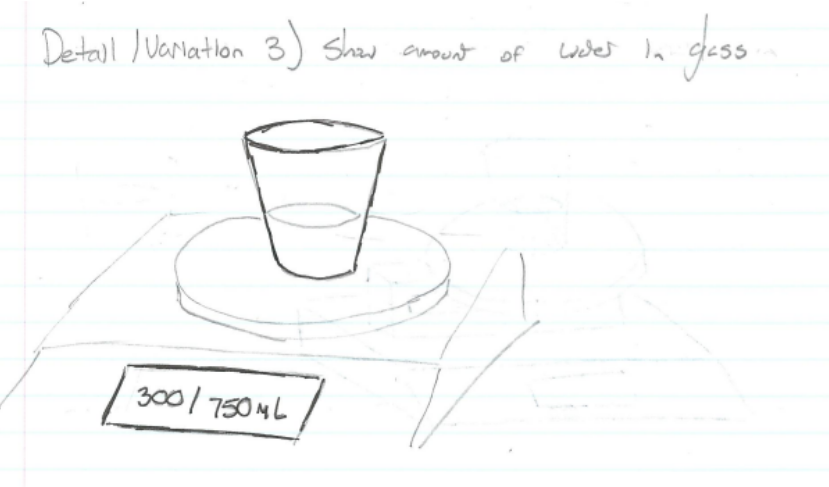 Detail/Variation 3) Show amount of water in glass
300/750mL